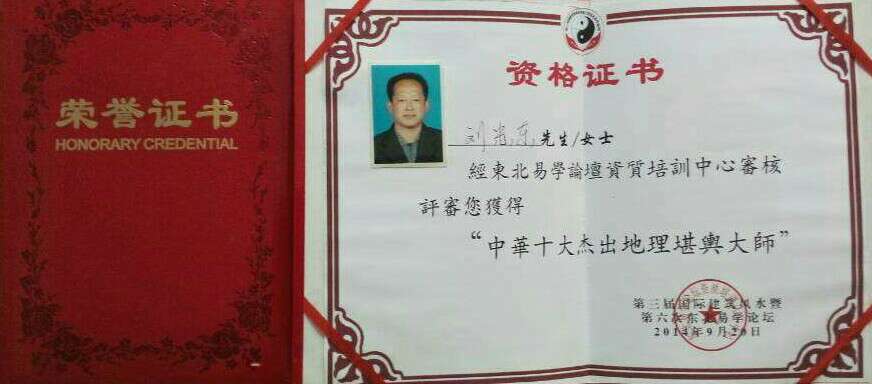 荣誉证书
HONORARY CREDENTIAL
资格证书
刘 东 先生/女士
經東北易學論壇資質培訓中心審核
評審您獲得
“中華十大杰出地理堪輿大師”
第三届国际建筑风水暨
第六次东北易学论坛
2014年9月20日